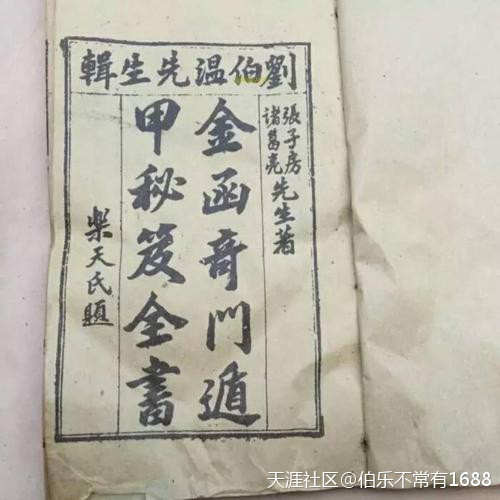 劉伯温先生輯
張子房
諸葛亮
先生著
金函奇門遁
甲秘笈全書
樂天氏題
天涯社区@伯乐不常有1688